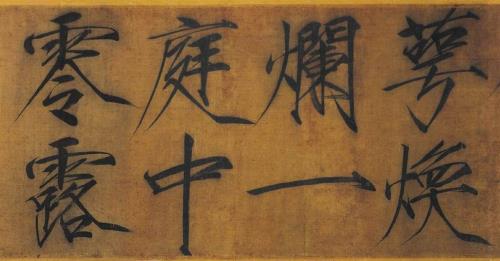 萼煥
爛一
庭中
零露